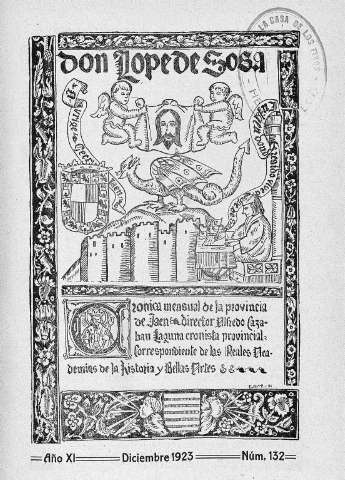 don Lope de Sosa
LA CASA DE LOS
Cronica mensual de la provincia
de Jaen director Alfredo Caza-
ban Laguna cronista provincial-
Correspondiente de las Reales Aca-
demias de la Historia y Bellas Artes
Año XI Diciembre 1923 Núm. 132